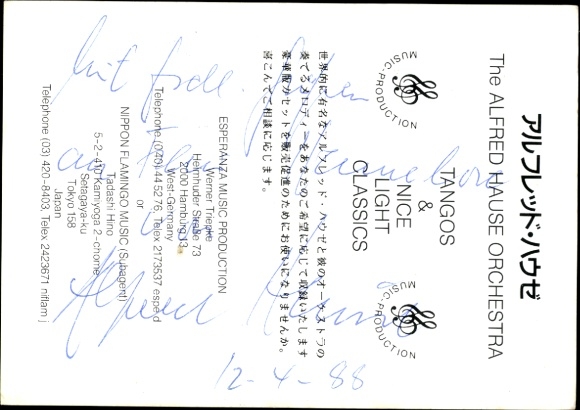 アルフレッド・ハウゼ
The ALFRED HAUSE ORCHESTRA
MUSIC-PRODUCTION
TANGOS
&
NICE
LIGHT
CLASSICS
MUSIC-PRODUCTION
世界的に有名なアルフレッド・ハウゼと彼のオーケストラの
奏でるメロディーをあなたのご希望に応じて収録いたします
豪華版カセットを販売促進のためにお使いになりませんか。
喜こんでご相談に応じます。
ESPERANZA MUSIC PRODUCTION
Werner Triepke
Heimhuder Straße 73
2000 Hamburg 13
West-Germany
Telephone (040) 44 52 76, Telex 2173637 espe d
or
NIPPON FLAMINGO MUSIC (Subagent)
Tadashi Hino
5-2-410 Kamiyoga 2-chome
Setagaya-ku
Tokyo 158
Japan
Telephone (03) 420-8403, Telex 2423671 niflam j
mit
Alfred Hause
12-4-88